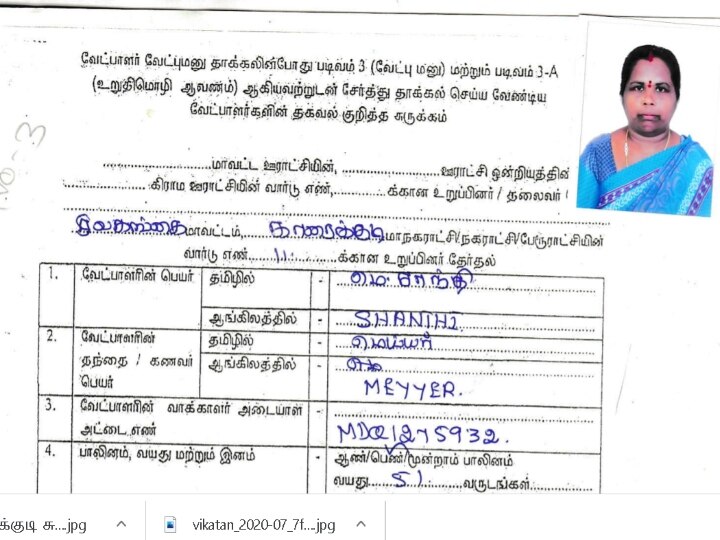 வேட்பாளர் வேட்புமனு தாக்கலின்போது படிவம் 3 (வேட்பு மனு) மற்றும் படிவம் 3-A
(உறுதிமொழி ஆவணம்) ஆகியவற்றுடன் சேர்த்து தாக்கல் செய்ய வேண்டிய
வேட்பாளர்களின் தகவல் குறித்த சுருக்கம்
.....................மாவட்ட ஊராட்சியின், .....................ஊராட்சி ஒன்றியத்தின்
.....................கிராம ஊராட்சியின் வார்டு எண்,............க்கான உறுப்பினர் / தலைவர் /
சிவகங்கை மாவட்டம், காரைக்குடி மாநகராட்சி/நகராட்சி/பேரூராட்சியின்
வார்டு எண்.....11............க்கான உறுப்பினர் தேர்தல்
1. வேட்பாளரின் பெயர் தமிழில் - மெ. சாந்தி
ஆங்கிலத்தில் - SHANTHI
2. வேட்பாளரின் தந்தை / கணவர் பெயர் தமிழில் - மெய்யர்
ஆங்கிலத்தில் -
MEYYER.
3. வேட்பாளரின் வாக்காளர் அடையாள அட்டை எண் - MDQ1275932.
4. பாலினம், வயது மற்றும் இனம் - ஆண்/பெண்/மூன்றாம் பாலினம்
வயது......51............வருடங்கள்............
க்குடி சு....jpg
vikatan_2020-07_7f....jpg